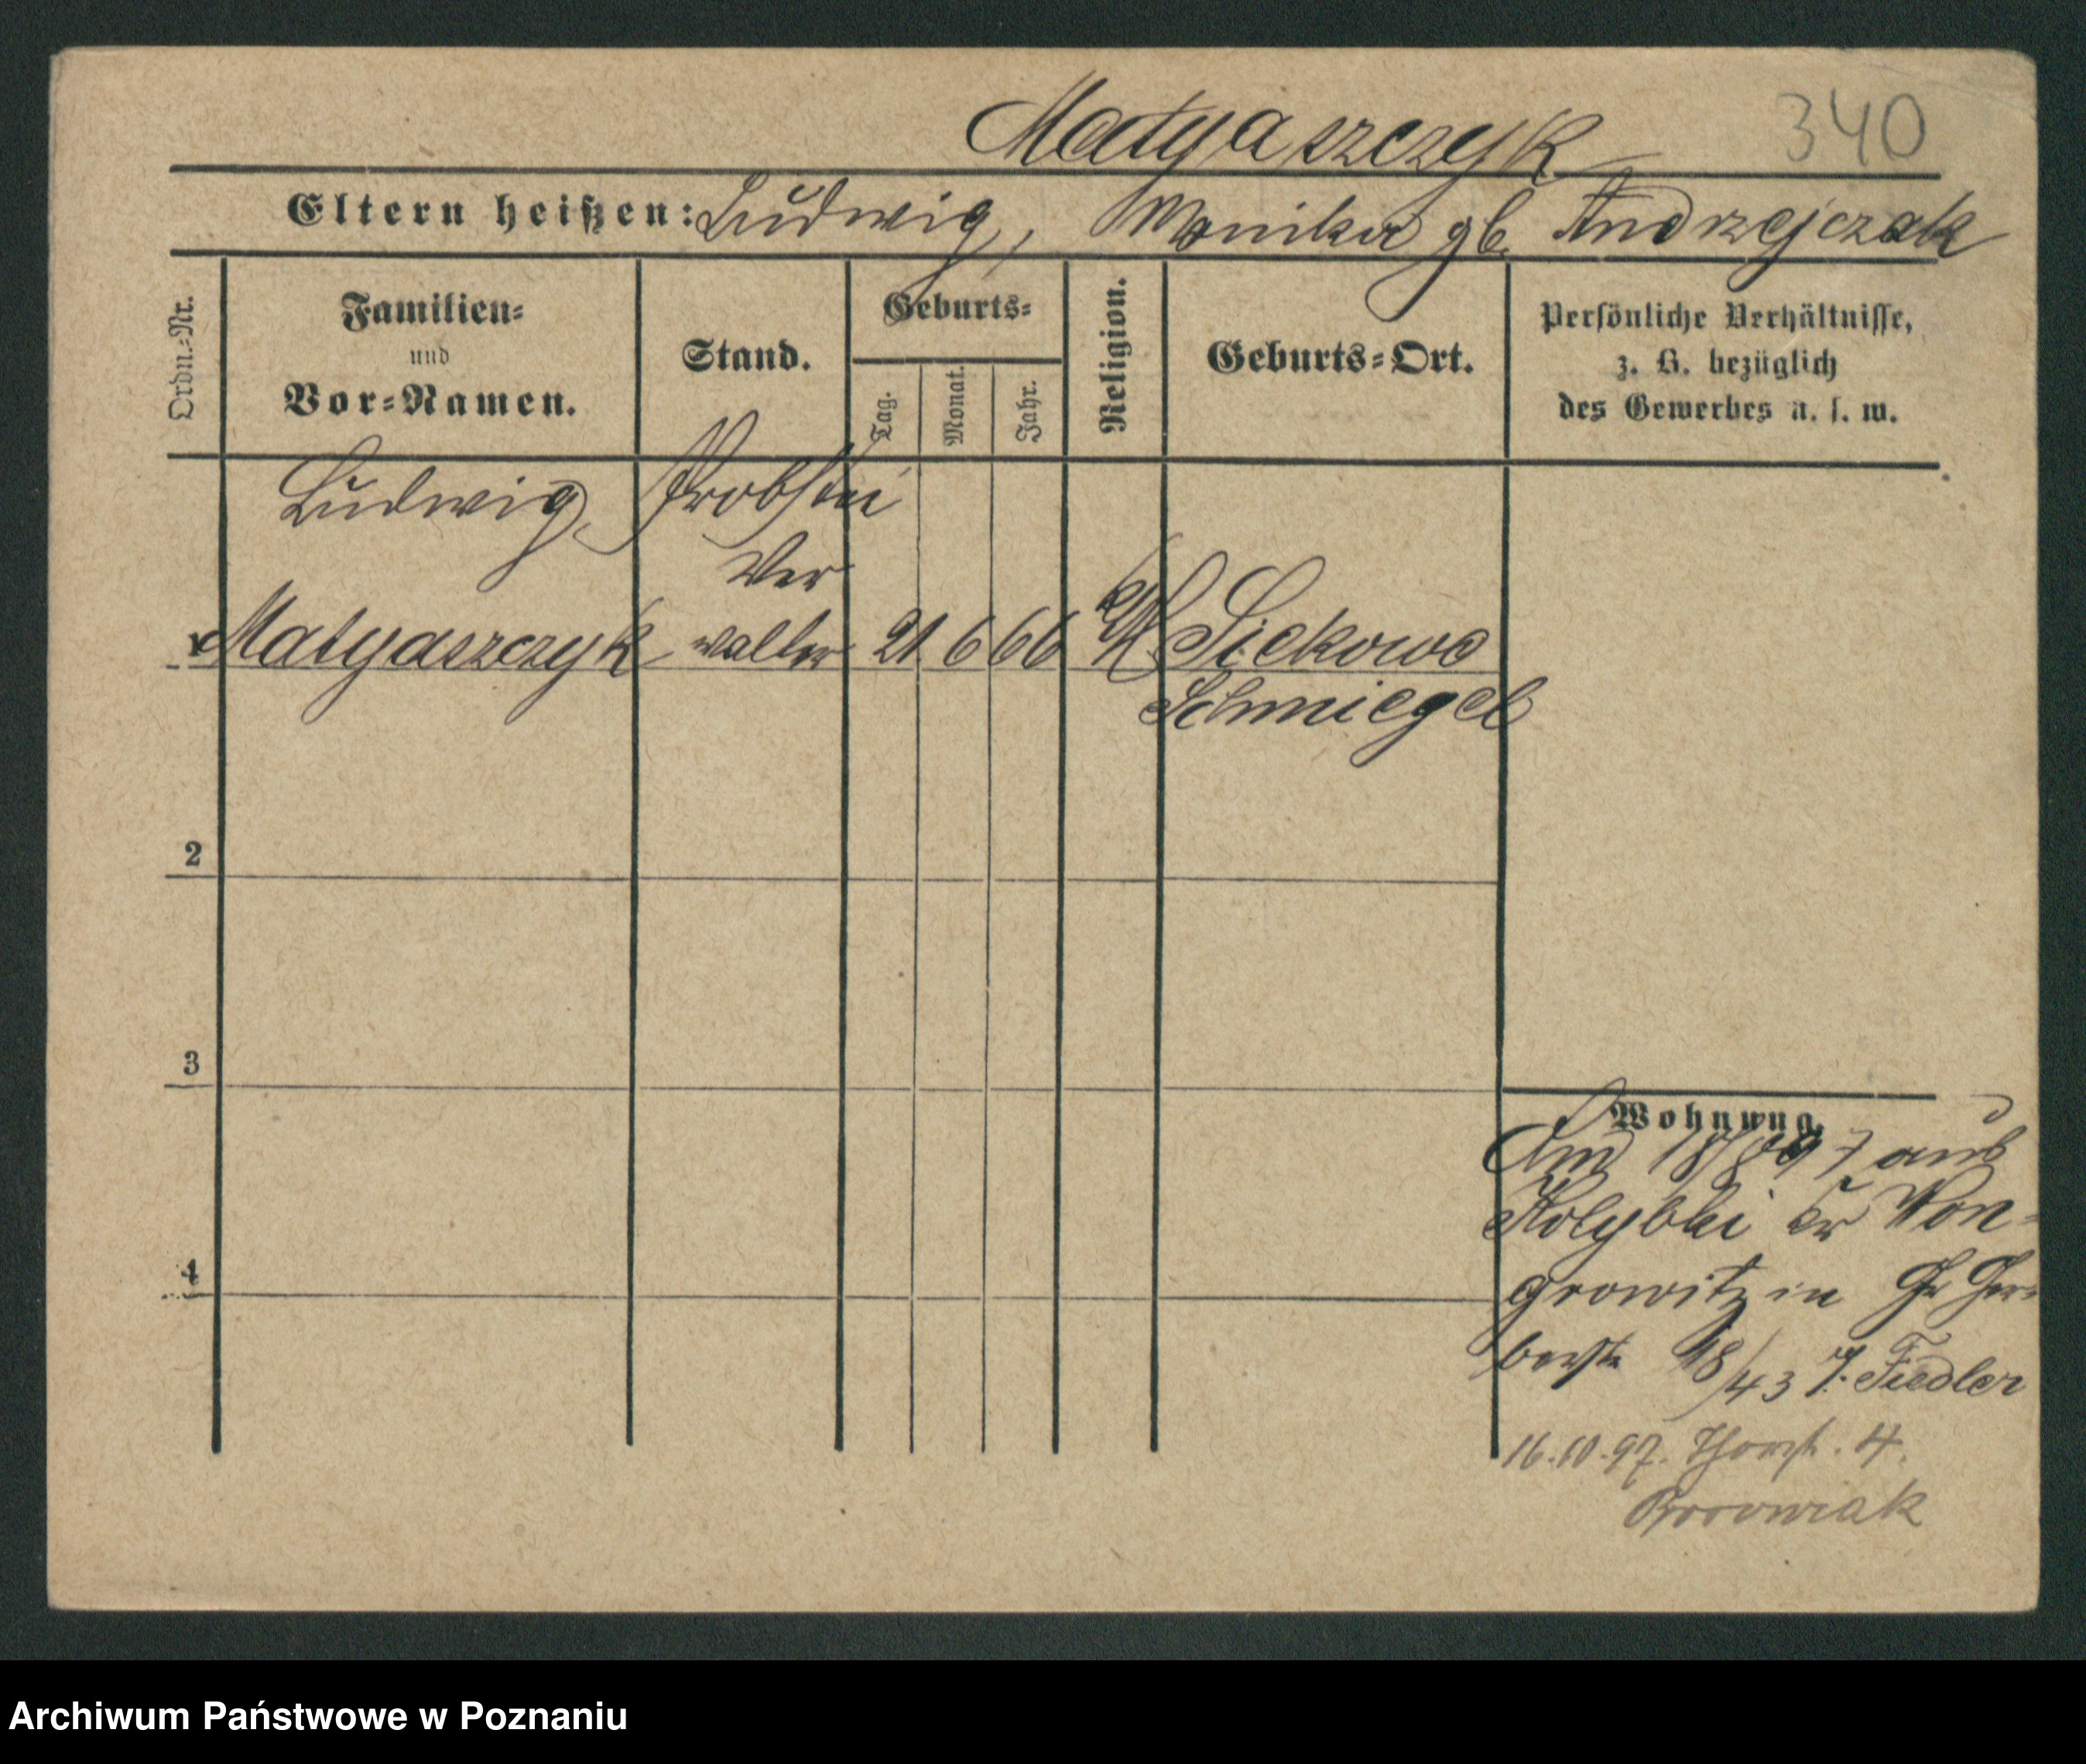 Matyaszczyk 340
Eltern heißen: Ludwig, Monika gb. Andrzejczak
Ordn.-Nr.
Familien-
und
Vor-Namen.
Stand.
Geburts-
Tag.
Monat.
Jahr.
Religion.
Geburts-Ort.
Persönliche Verhältnisse,
z. B. bezüglich
des Gewerbes u. s. w.
Ludwig Probstei
Ver
Matyaszczyk walter 21 6 66 K Siekowo
Schmiegel
2
3
4
Wohnung.
18/8 97 aus
Kolybki Kr Won-
growitz in Gr Ger-
berstr 18/43 b. Fiedler
16.10.97. Thorstr. 4.
Borowiak
Archiwum Państwowe w Poznaniu